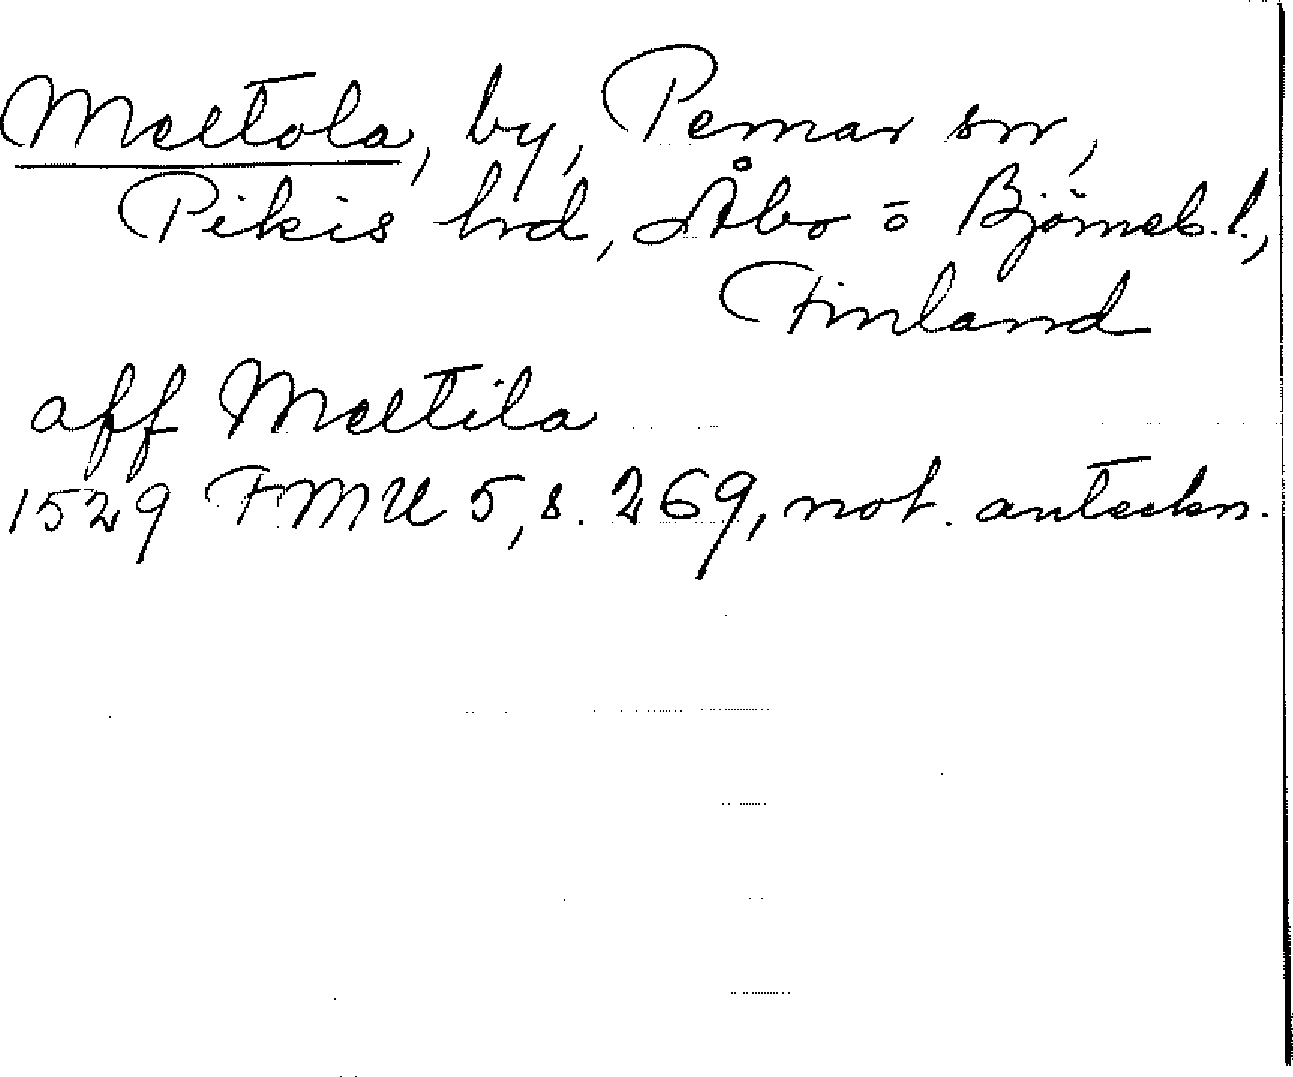 Meltola, by, Pemar sn,
Pikis hd, Åbo o Björneb. l.,
Finland
aff Meltila
1529 FMU 5, s. 269, not. anteckn.